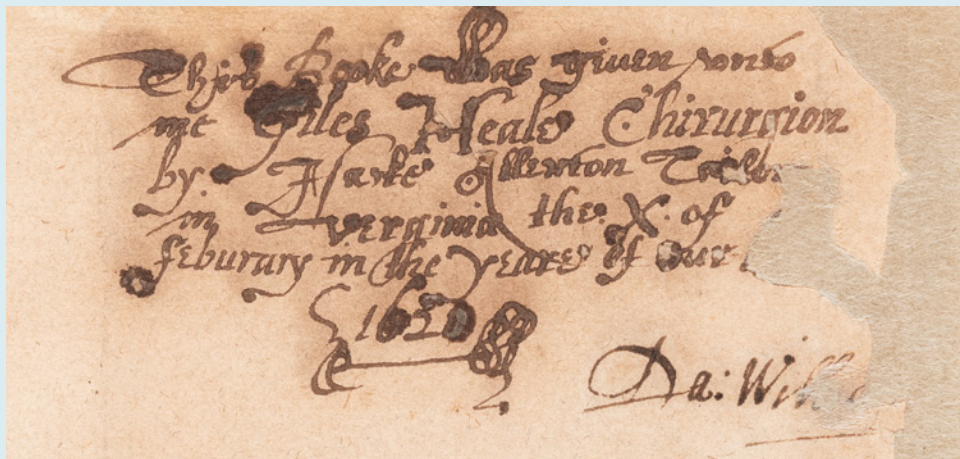 This Booke Was given vnto
me Giles Heale Chirurgion
by Isacke Allerton Tailor
in Verginia the X. of
feburary in the Yeare of our
1620
Da: Will